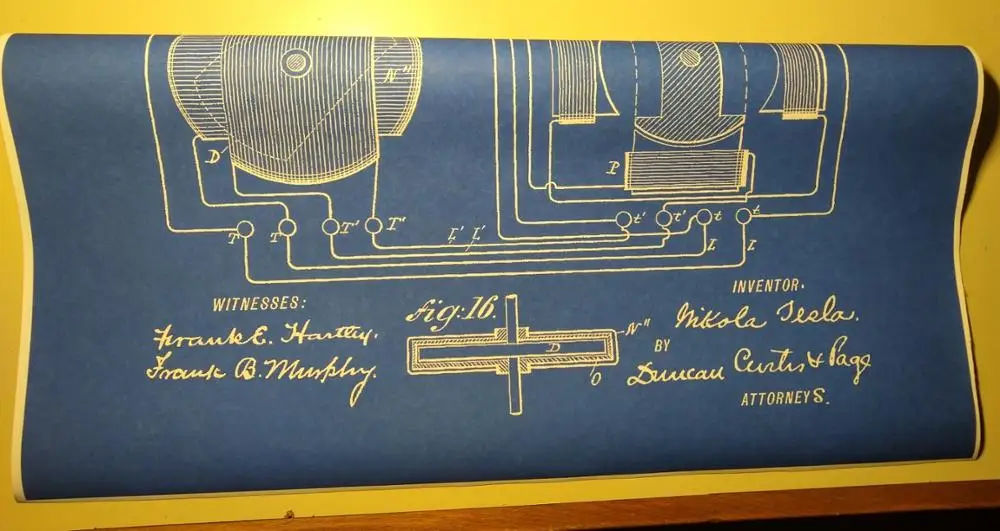 N"
D
P
T T T' T" L' L' t' t' t t
L L
WITNESSES:
Frank E. Hartley.
Frank B. Murphy.
Fig: 16.
N"
D
O
INVENTOR.
Nikola Tesla.
BY
Duncan Curtis & Page
ATTORNEYS.